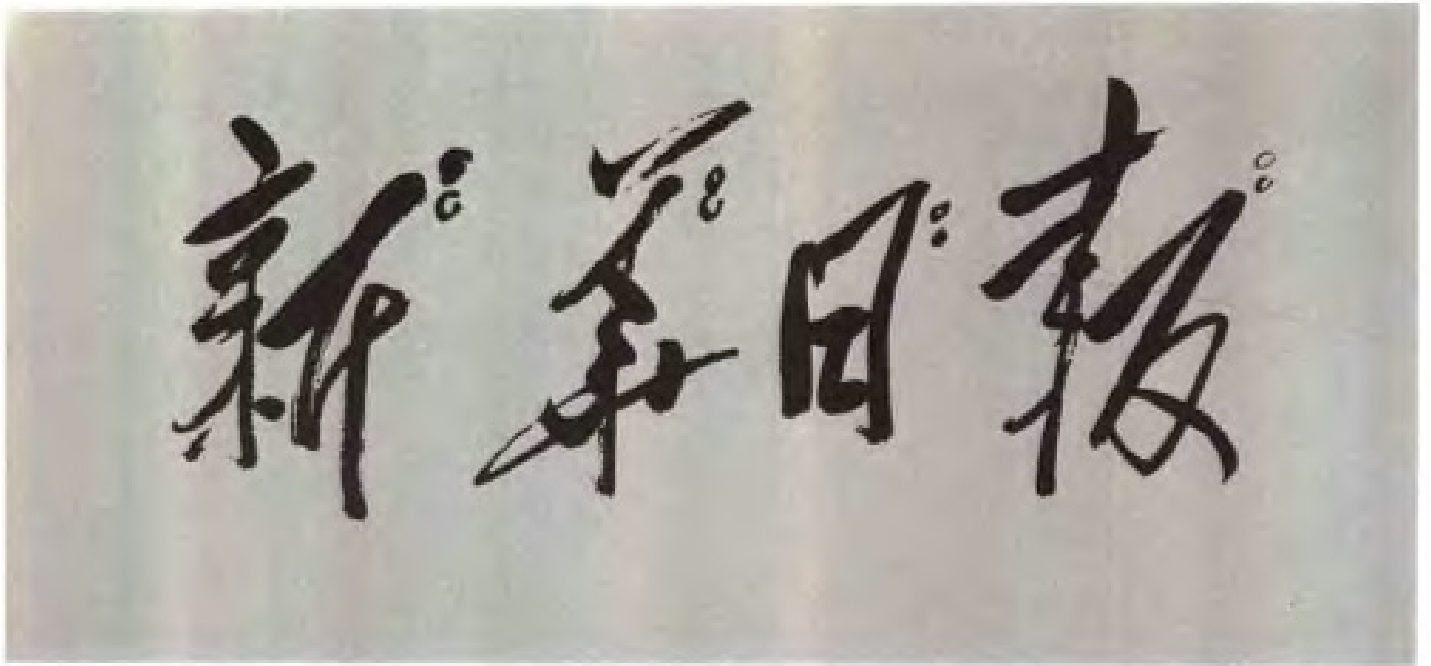 新华日报